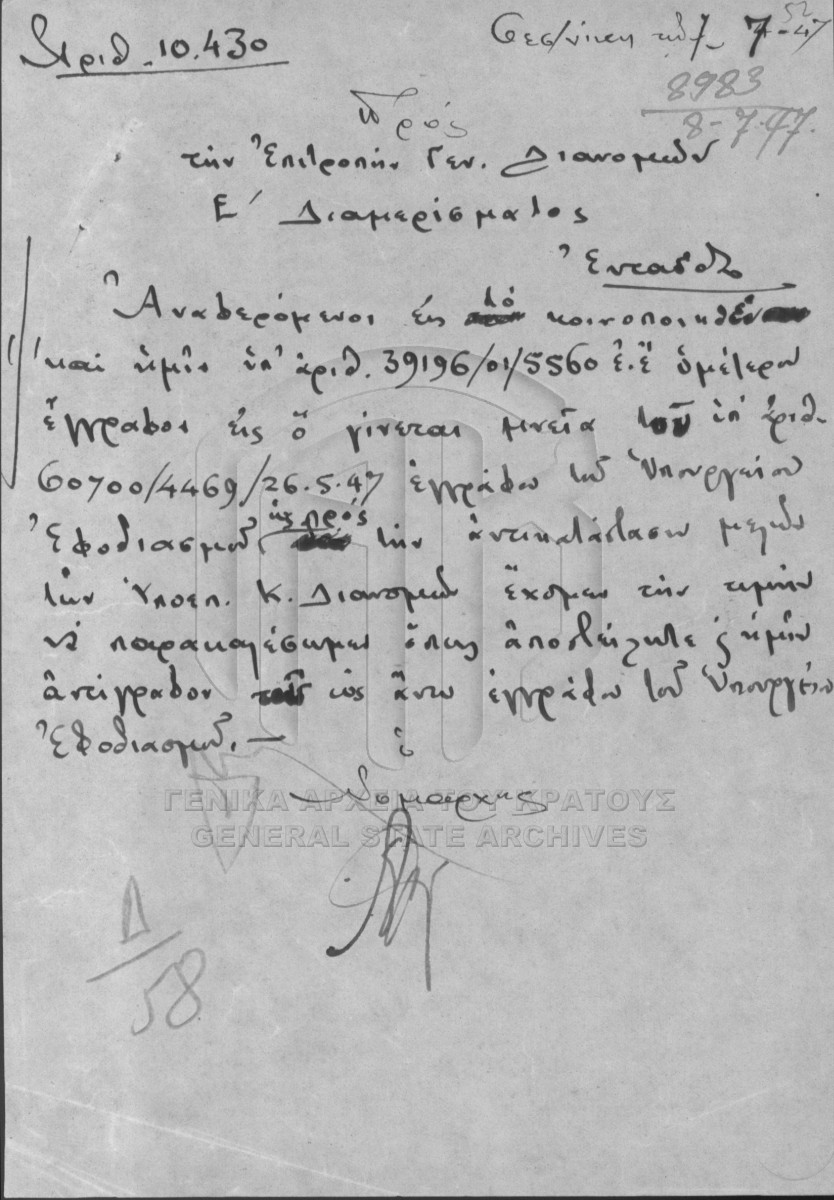 Ἀριθ. 10.430
Θεσ/νίκη τῇ 7-7-47
52
8983
8-7-47.
Πρός
τὴν Ἐπιτροπὴν Γεν. Διανομῶν
Ε΄ Διαμερίσματος
Ἐνταῦθα
Ἀναφερόμενοι εἰς τὸ κοινοποιηθὲν
καὶ ἡμῖν ὑπ' ἀριθ. 39196/01/5560 ἐ.ἔ ὑμέτερον
ἔγγραφον εἰς ὃ γίνεται μνεία τοῦ ὑπ' ἀριθ.
60700/4469/26.5.47 ἐγγράφου τοῦ Ὑπουργείου
Ἐφοδιασμοῦ, ὡς πρὸς τὴν ἀντικατάστασιν μελῶν
τῶν Ὑποεπ. Κ. Διανομῶν ἔχομεν τὴν τιμὴν
νὰ παρακαλέσωμεν ὅπως ἀποστείλητε εἰς ἡμᾶς
ἀντίγραφον τοῦ ὡς ἄνω ἐγγράφου τοῦ Ὑπουργείου
Ἐφοδιασμοῦ. —
ὁ
Νομάρχης
ΓΕΝΙΚΑ ΑΡΧΕΙΑ ΤΟΥ ΚΡΑΤΟΥΣ
GENERAL STATE ARCHIVES
Δ/58